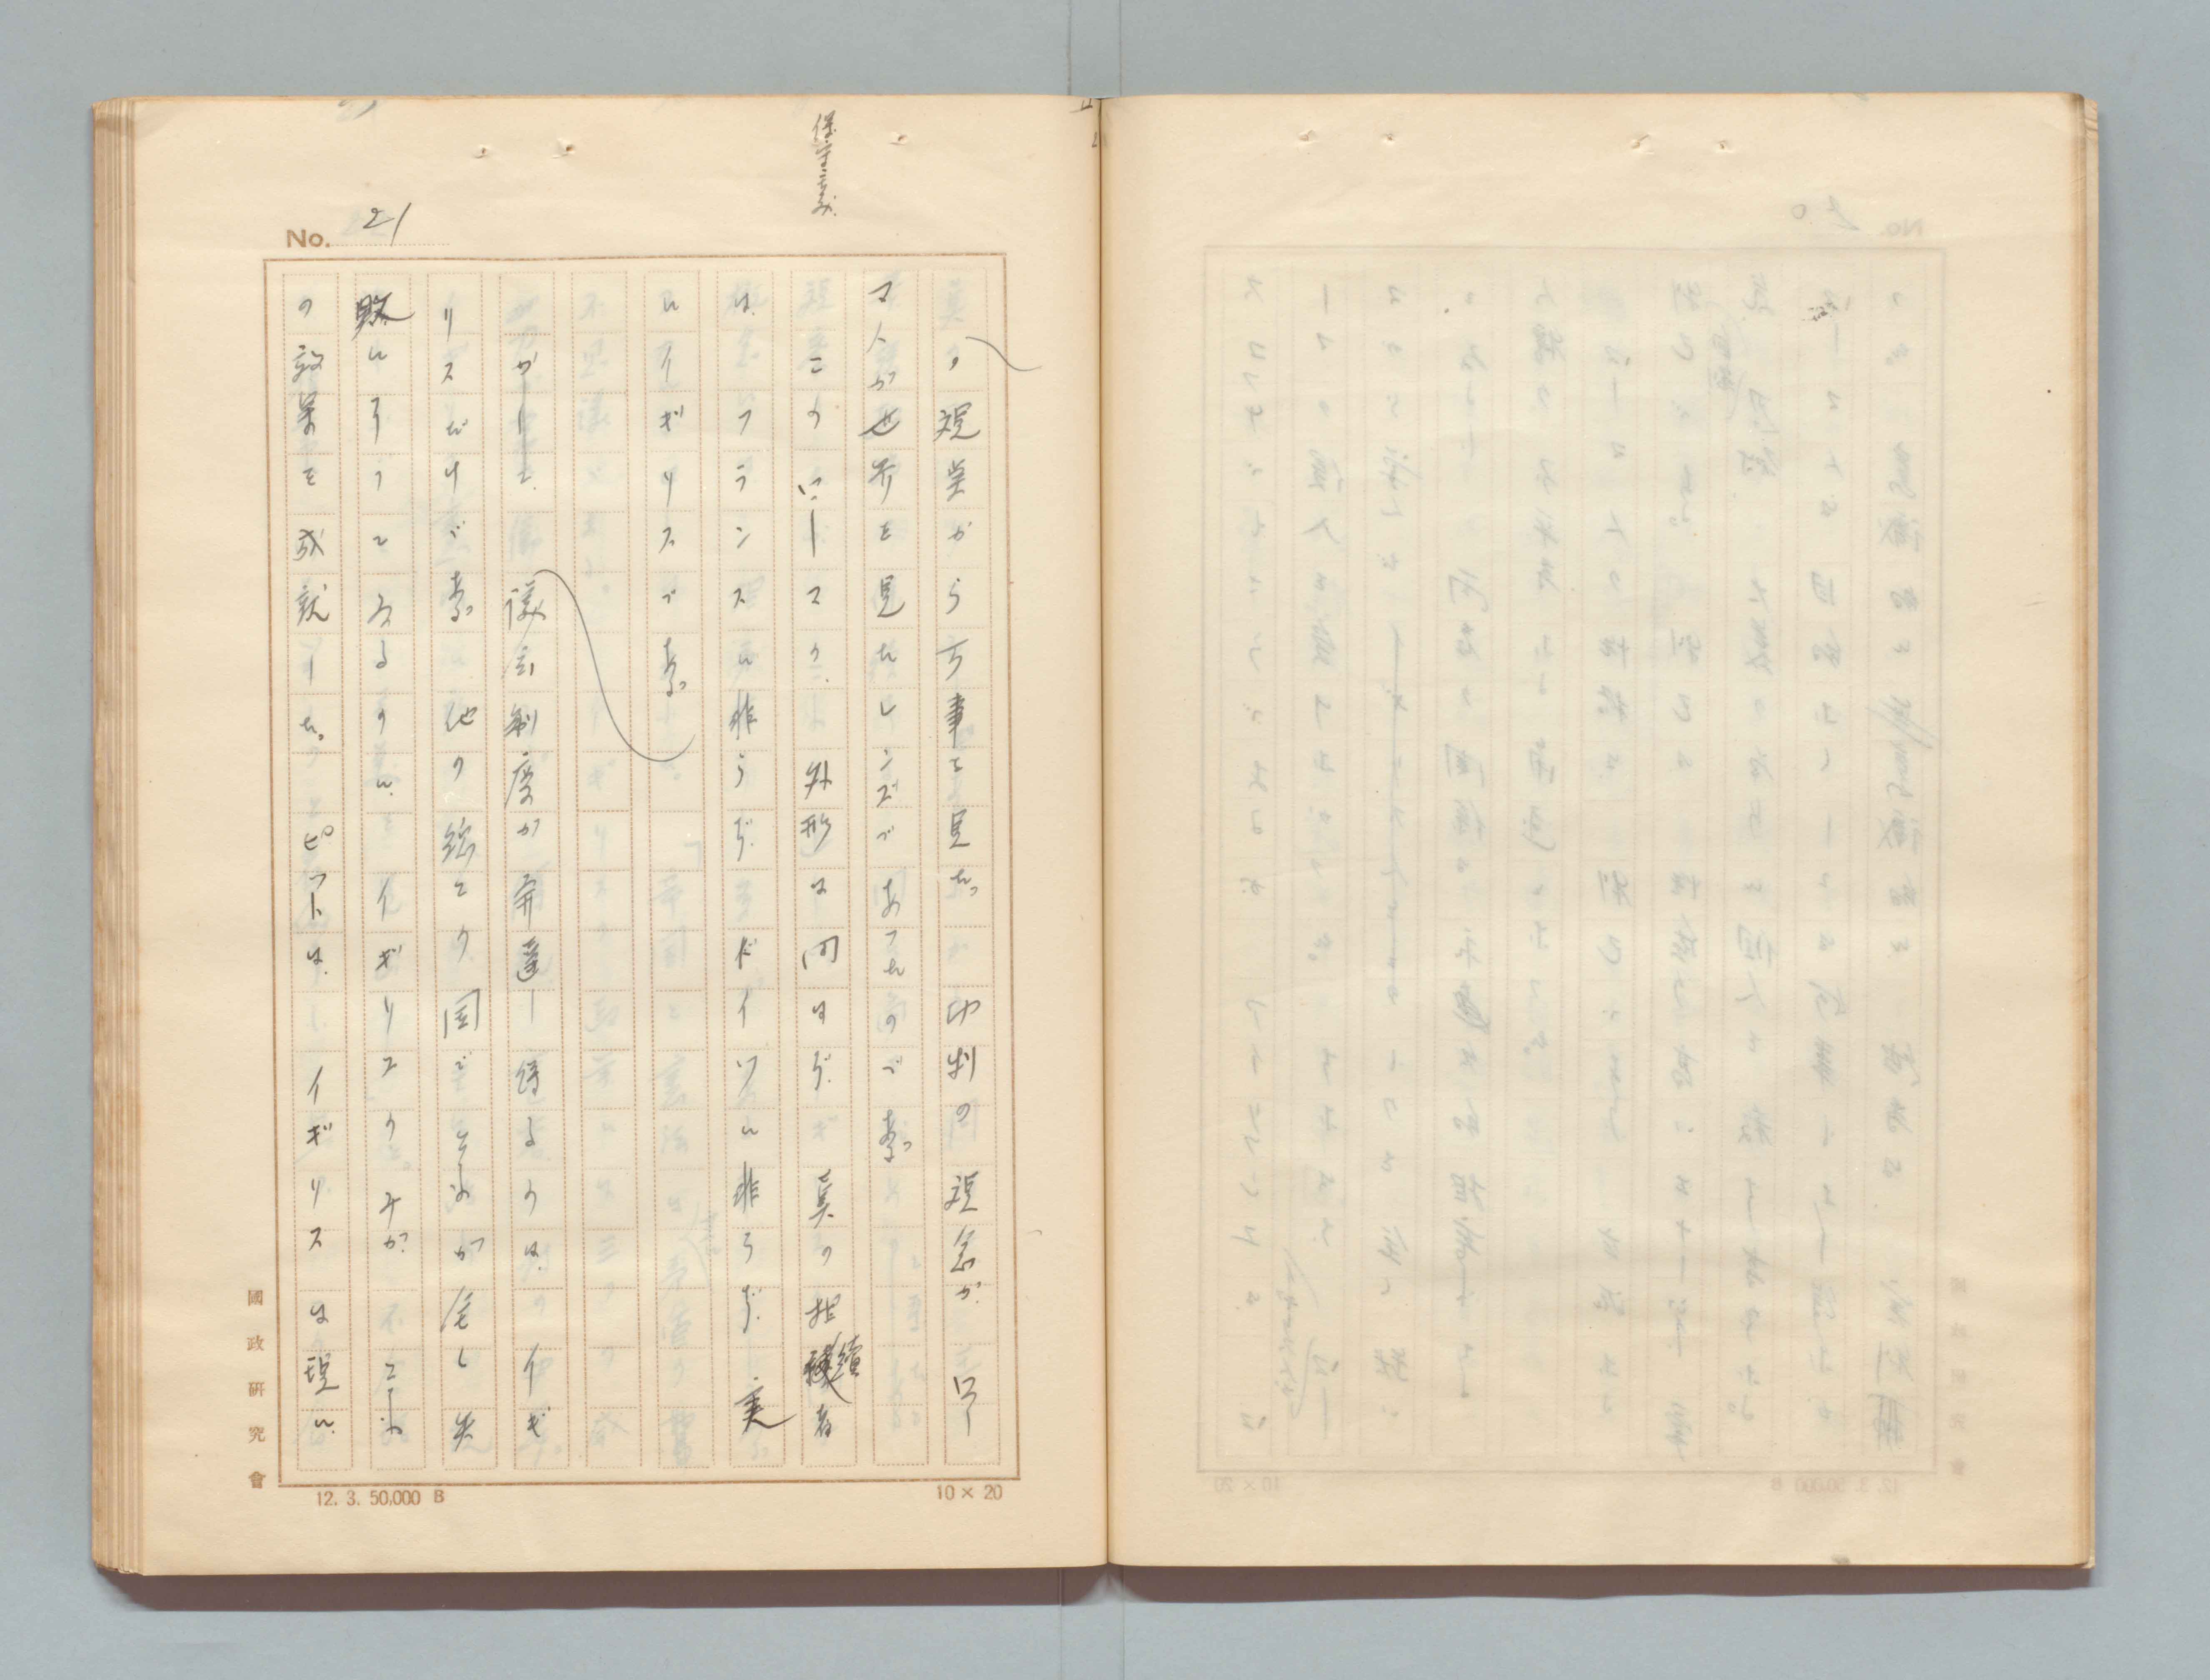 保守主義
No. 21
、観点から万事を見た。功利の観念が、ロー
マ人が世界を見たレンズであつたのである。
はこのローマの、外形は問はず、真の相續者
は、フランスに非らず、ドイツに非らず、実
にイギリスである。
しかして、議会制度が発達し得るのは、イギ
リスだけである。他の総ての国で、それが尽く失
敗に了つてゐるのに、イギリスのみが、これ
の効果を成就した。ピットは、イギリスは現に、
國政研究會
12. 3. 50,000 B
10×20